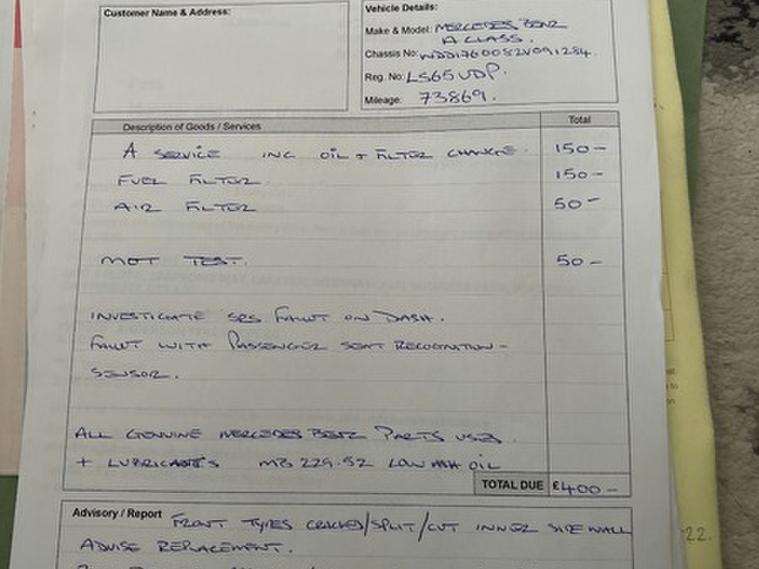 Customer Name & Address:
Vehicle Details:
Make & Model: MERCEDES BENZ
A CLASS.
Chassis No: WDD1760082V091284.
Reg. No: LS65UDP.
Mileage: 73869.
Description of Goods / Services Total
A SERVICE INC OIL + FILTER CHANGE. 150-
FUEL FILTER. 150-
AIR FILTER 50-
MOT TEST. 50-
INVESTIGATE SRS FAULT ON DASH.
FAULT WITH PASSENGER SEAT RECOGNITION -
SENSOR.
ALL GENUINE MERCEDES BENZ PARTS USED.
+ LUBRICANTS MB 229.52 LOW ASH OIL
TOTAL DUE £400-
Advisory / Report FRONT TYRES CRACKED/SPLIT/CUT INNER SIDE WALL
ADVISE REPLACEMENT.
22.